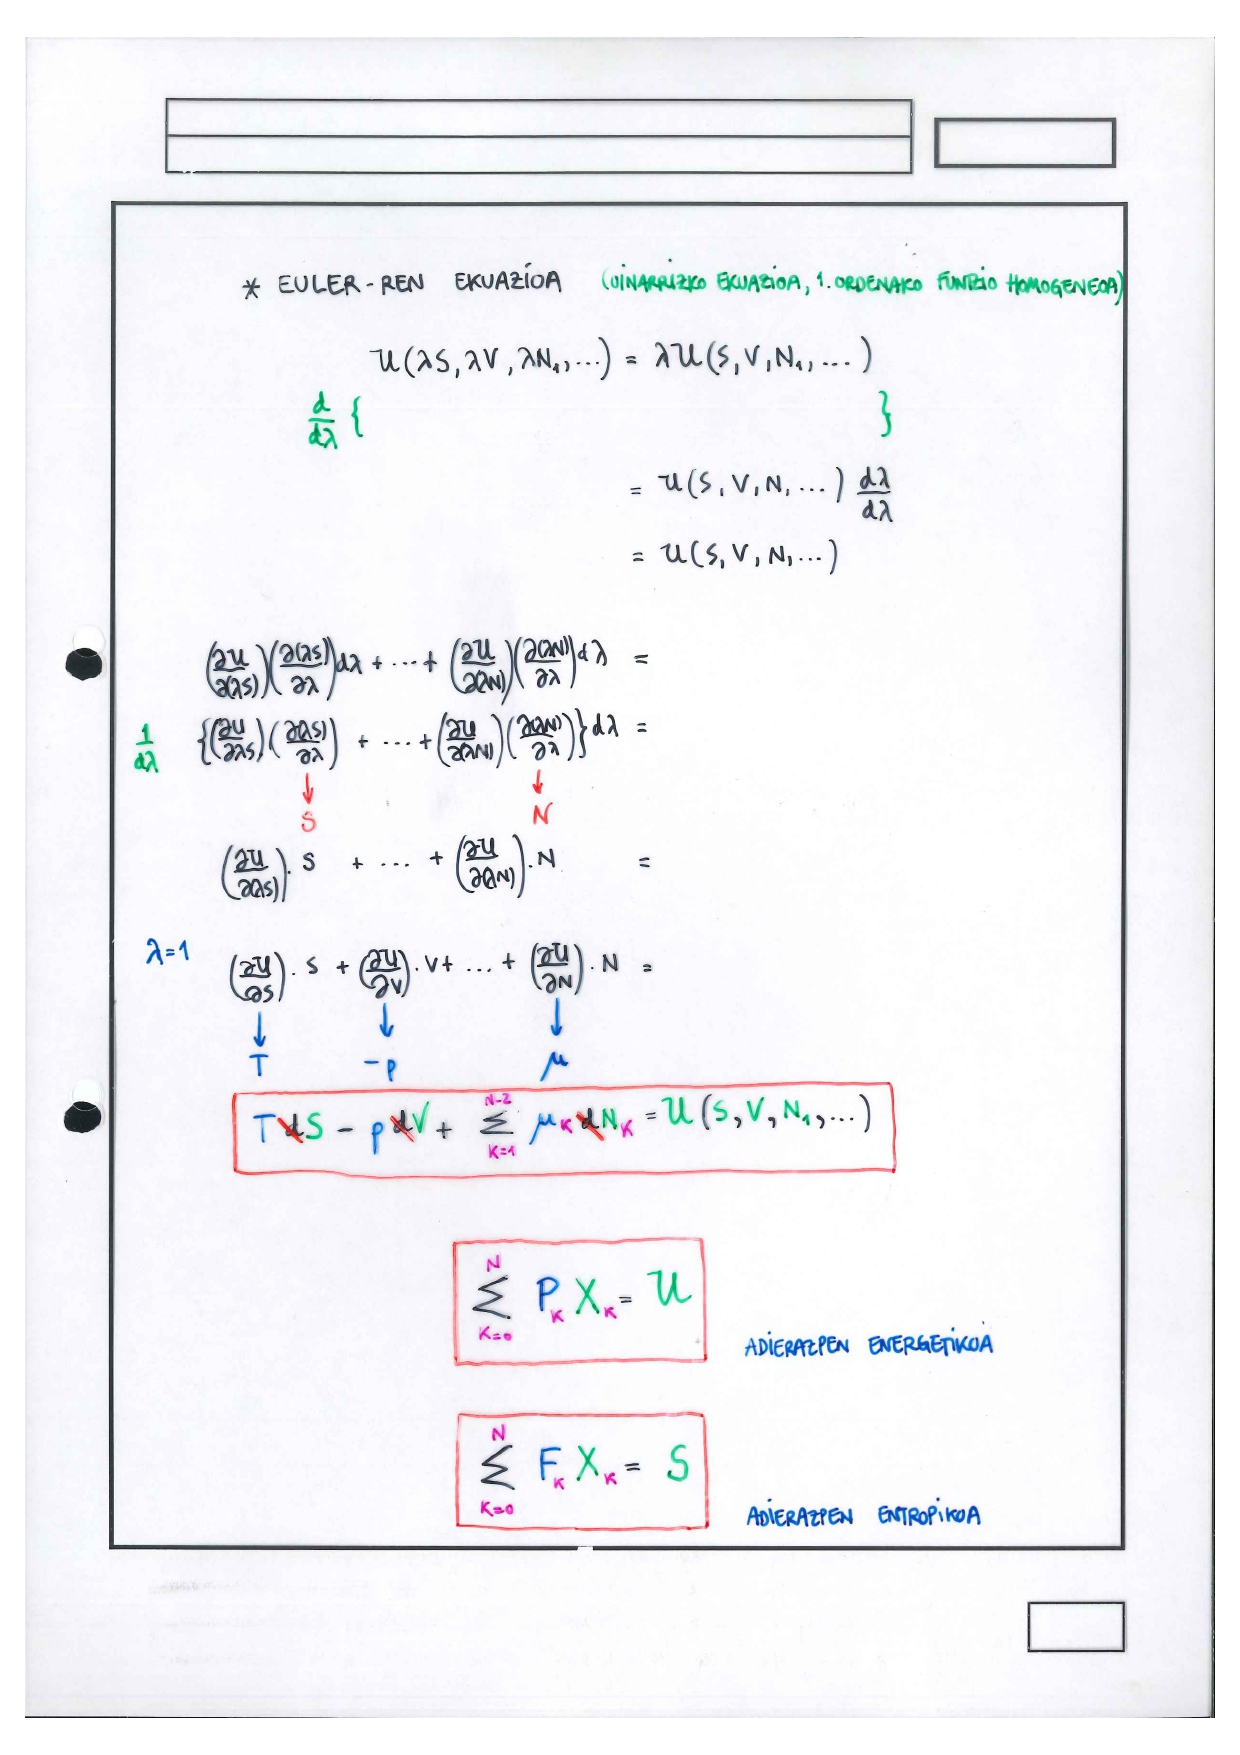 * EULER-REN EKUAZIOA (OINARRIZKO EKUAZIOA, 1. ORDENAKO FUNTZIO HOMOGENEOA)
U(λS, λV, λN₁, ...) = λU(S, V, N₁, ...)
d/dλ { }
= U(S, V, N, ...) dλ/dλ
= U(S, V, N, ...)
(∂U/∂(λS)) (∂(λS)/∂λ) dλ + ... + (∂U/∂(λN)) (∂(λN)/∂λ) dλ =
1/dλ {(∂U/∂λS) (∂(λS)/∂λ) + ... + (∂U/∂(λN)) (∂(λN)/∂λ)} dλ =
↓ S ↓ N
(∂U/∂(λS)) . S + ... + (∂U/∂(λN)) . N =
λ=1 (∂U/∂S) . S + (∂U/∂V) . V + ... + (∂U/∂N) . N =
↓ ↓ ↓
T -p μ
T d S - p d V + Σ_{K=1}^{N-2} μ_K d N_K = U(S, V, N₁, ...)
Σ_{K=0}^{N} P_K X_K = U
ADIERAZPEN ENERGETIKOA
Σ_{K=0}^{N} F_K X_K = S
ADIERAZPEN ENTROPIKOA